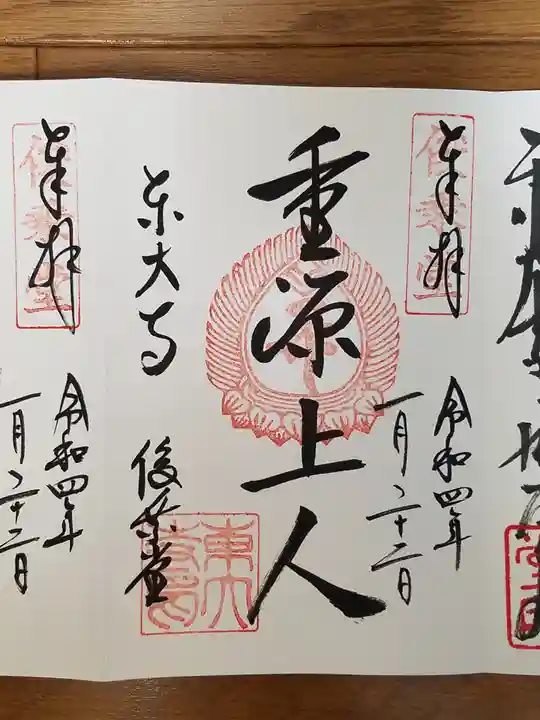 奉拝
俊乗堂
令和四年
一月二十二日
重源上人
東大寺
俊乗堂
東大寺印
奉拝
俊乗堂
令和四年
一月二十二日